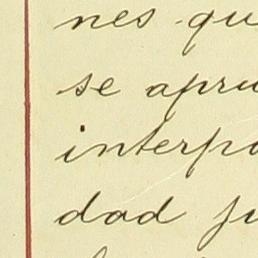 nes qu
se apru
interpo
dad ju